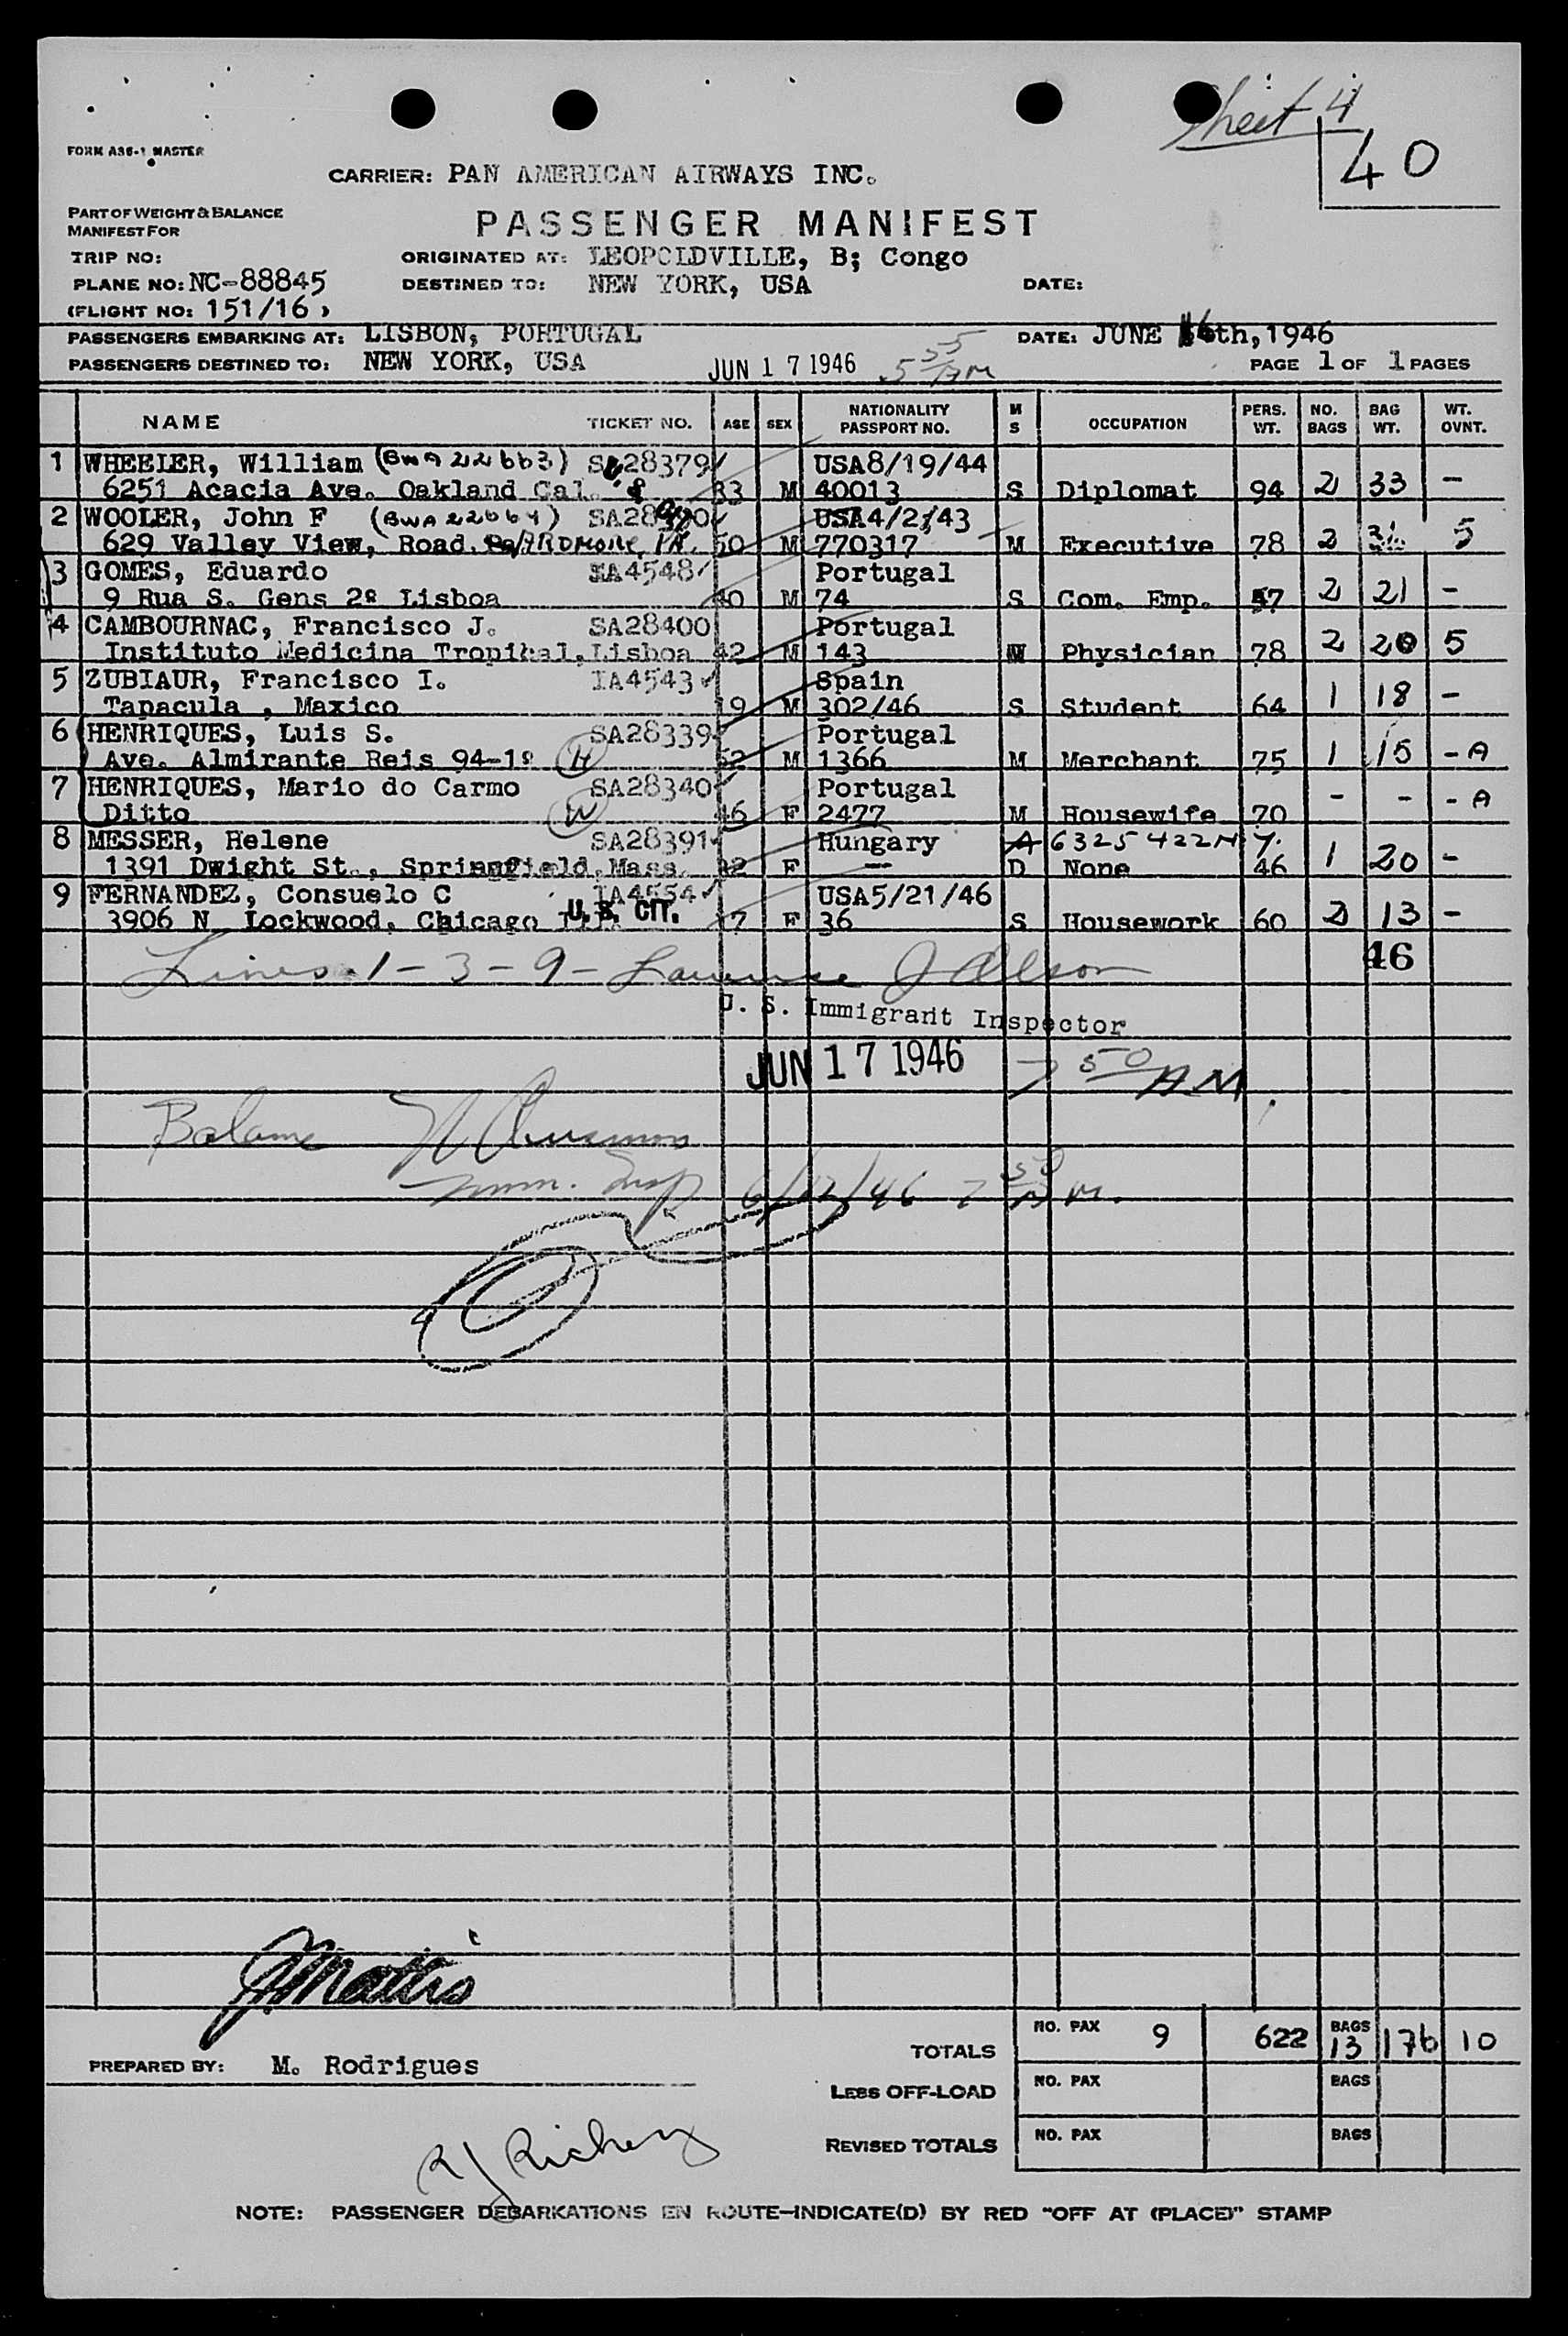 Sheet 4
40
FORM A36-1 MASTER
CARRIER: PAN AMERICAN AIRWAYS INC.
PART OF WEIGHT & BALANCE
MANIFEST FOR
PASSENGER MANIFEST
TRIP NO:
ORIGINATED AT: LEOPOLDVILLE, B; Congo
PLANE NO: NC-88845
DESTINED TO: NEW YORK, USA
DATE:
(FLIGHT NO: 151/16)
PASSENGERS EMBARKING AT: LISBON, PORTUGAL
DATE: JUNE 16th, 1946
PASSENGERS DESTINED TO: NEW YORK, USA
JUN 17 1946 5 55 AM
PAGE 1 OF 1 PAGES
NAME TICKET NO. AGE SEX NATIONALITY PASSPORT NO. M S OCCUPATION PERS. WT. NO. BAGS BAG WT. WT. OVNT.
1 WHEELER, William (BWA 22663) SA28379 USA8/19/44
6251 Acacia Ave. Oakland Cal. 33 M 40013 S Diplomat 94 2 33 -
2 WOOLER, John F (BWA 22664) USA4/2/43
629 Valley View, Road. ARDMORE, PA. 50 M 770317 M Executive 78 2 5
3 GOMES, Eduardo IA4548 Portugal
9 Rua S. Gens 2º Lisboa 40 M 74 S Com. Emp. 57 2 21 -
4 CAMBOURNAC, Francisco J. SA28400 Portugal
Instituto Medicina Tropical, Lisboa 42 M 143 Physician 78 2 20 5
5 ZUBIAUR, Francisco I. IA4543 Spain
Tapacula , Maxico 19 M 302/46 S Student 64 1 18 -
6 HENRIQUES, Luis S. SA28339 Portugal
Ave. Almirante Reis 94-1º H 52 M 1366 M Merchant 75 1 15 - A
7 HENRIQUES, Mario do Carmo SA28340 Portugal
Ditto W 46 F 2477 M Housewife 70 - - - A
8 MESSER, Helene SA28391 Hungary A 6325422 N Y.
1391 Dwight St., Springfield, Mass. F -- D None 46 1 20 -
9 FERNANDEZ, Consuelo C IA4554 USA5/21/46
3906 N Lockwood, Chicago U.S. CIT. 17 F 36 S Housework 60 2 13 -
Lines 1 - 3 - 9 - Lawrence J Olson
46
U. S. Immigrant Inspector
JUN 17 1946 7 50 AM
Balance
Imm. Insp 6/17/46 7 50 A M.
J. Mattis
TOTALS NO. PAX 9 622 BAGS 13 176 10
PREPARED BY: M. Rodrigues
LESS OFF-LOAD NO. PAX BAGS
REVISED TOTALS NO. PAX BAGS
R J Richey
NOTE: PASSENGER DEBARKATIONS EN ROUTE-INDICATE(D) BY RED "OFF AT (PLACE)" STAMP